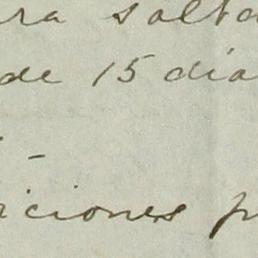 ra solta
de 15 dia
-
iciones p